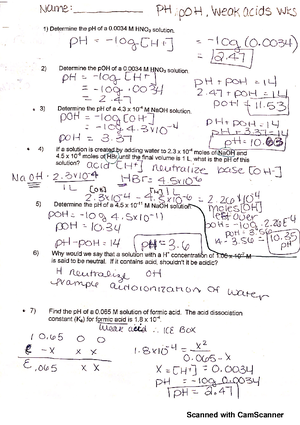 Name: PH, pOH, weak acids wks
1) Determine the pH of a 0.0034 M HNO₃ solution.
pH = -log[H+] = -log(0.0034)
= 2.47
2) Determine the pOH of a 0.0034 M HNO₃ solution.
pH = -log[H+]
= -log .0034
= 2.47
pH + pOH = 14
2.47 + pOH = 14
pOH = 11.53
3) Determine the pH of a 4.3 x 10⁻⁴ M NaOH solution.
pOH = -log[OH]
= -log 4.3x10⁻⁴
pOH = 3.37
pH + pOH = 14
pH + 3.37 = 14
pH = 10.63
4) If a solution is created by adding water to 2.3 x 10⁻⁴ moles of NaOH and
4.5 x 10⁻⁶ moles of HBr until the final volume is 1 L, what is the pH of this
solution? acid-[H+] neutralize base [OH-]
NaOH: 2.3x10⁻⁴ HBr: 4.5x10⁻⁶
1L
2.3x10⁻⁴ - 4.5x10⁻⁶ = 2.26x10⁻⁴
moles [OH]
left over
pOH = -log 2.26E-4
pOH = 3.65
10.35
pH
5) Determine the pH of a 4.5 x 10⁻¹¹ M NaOH solution.
pOH = -log 4.5x10⁻¹¹)
pOH = 10.34
pH-pOH = 14 pH = 3.6
6) Why would we say that a solution with a H⁺ concentration of 1.00 x 10⁻⁷ M
is said to be neutral. If it contains acid, shouldn't it be acidic?
H neutralize OH
autoionization of water
7) Find the pH of a 0.065 M solution of formic acid. The acid dissociation
constant (Ka) for formic acid is 1.8 x 10⁻⁴.
weak acid ∴ ICE BOX
I 0.65 0 0
C -x x x
E .065 x x
1.8x10⁻⁴ = x²
0.065-x
x = [H+] = 0.0034
pH = -log 0.0034
pH = 2.47
Scanned with CamScanner